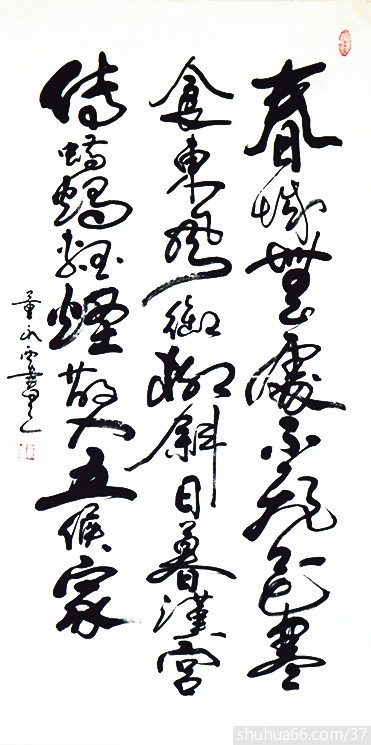 春城無處不飛花寒
食東風御柳斜日暮漢宮
傳蠟燭輕煙散入五侯家
董永雲書
shuhua66.com/37